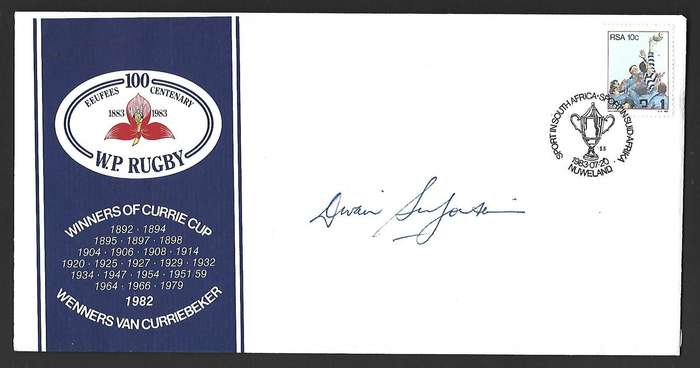 100
EEUFEES CENTENARY
1883 1983
W.P. RUGBY
WINNERS OF CURRIE CUP
1892 · 1894
1895 · 1897 · 1898
1904 · 1906 · 1908 · 1914
1920 · 1925 · 1927 · 1929 · 1932
1934 · 1947 · 1954 · 1951/59
1964 · 1966 · 1979
1982
WENNERS VAN CURRIEBEKER
RSA 10c
SPORT IN SOUTH AFRICA · SPORT IN SUID-AFRIKA
1983·07·20
NUWELAND